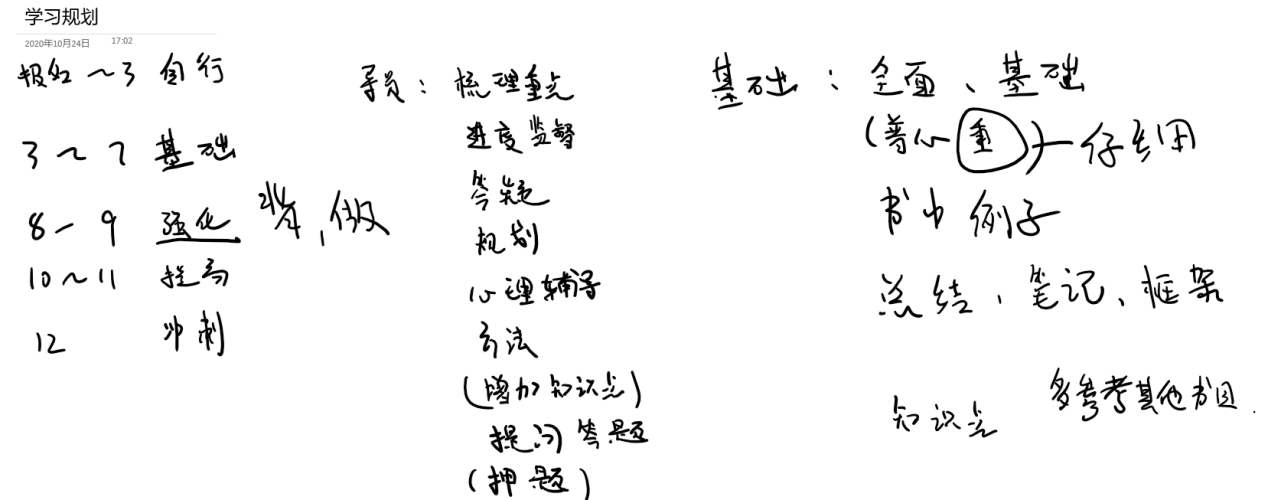 学习规划
2020年10月24日 17:02
报名～3 自行
3～7 基础
8－9 强化 背,做
10～11 提高
12 冲刺
导员：梳理重点
进度监督
答疑
规划
心理辅导
方法
(增加知识点)
提问答题
(押题)
基础：全面、基础
(普心重)
书中例子
总结、笔记、框架
知识点 多参考其他书目.